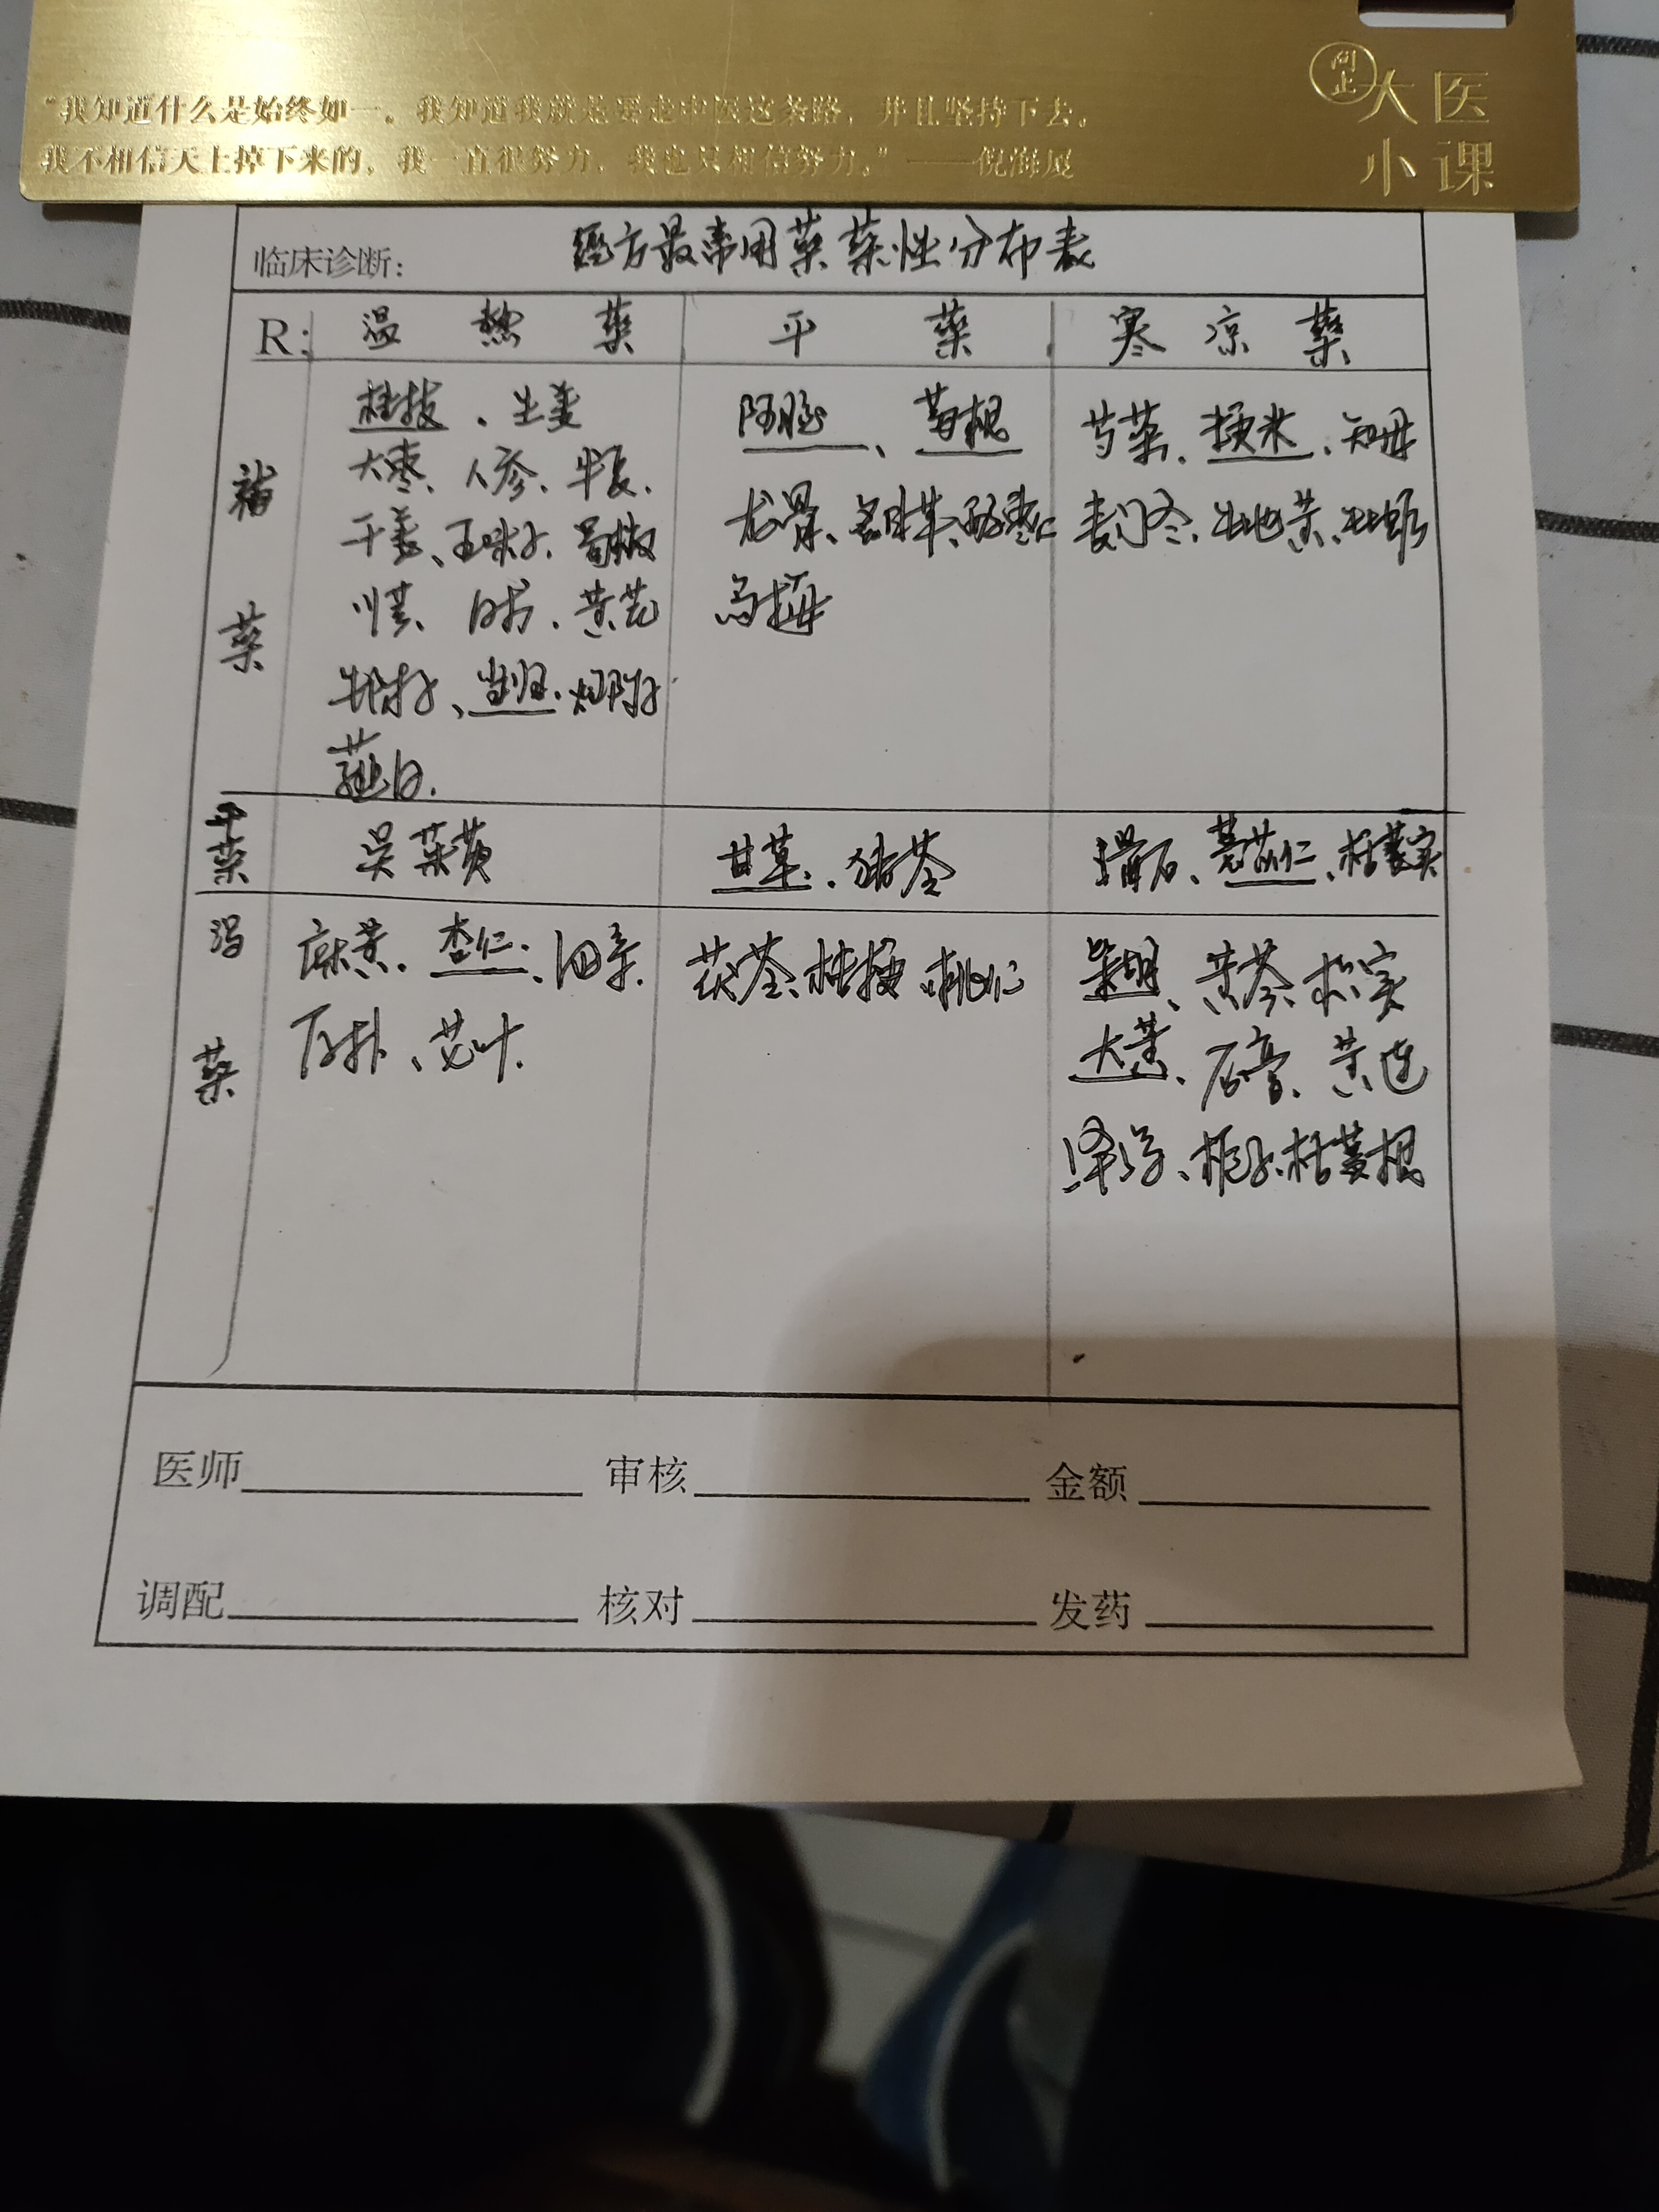 “我知道什么是始终如一。我知道我就是要走中医这条路，并且坚持下去。
我不相信天上掉下来的，我一直很努力，我也只相信努力。”——倪海厦
问止
大医
小课
临床诊断： 经方最常用药药性分布表
R: 温热药 平药 寒凉药
补药
桂枝、生姜
大枣、人参、半夏、
干姜、五味子、蜀椒
川芎、白术、黄芪
生附子、当归、炮附子
薤白.
阿胶、葛根
龙骨、酸枣仁
乌梅
芍药、粳米、知母
麦门冬、生地黄、牡蛎
平药
吴茱萸
甘草、猪苓
滑石、薏苡仁、栝蒌实
泻药
麻黄、杏仁、细辛、
厚朴、艾叶.
茯苓、桔梗、桃仁
柴胡、黄芩、枳实
大黄、石膏、黄连
泽泻、栀子、栝蒌根
医师 审核 金额
调配 核对 发药